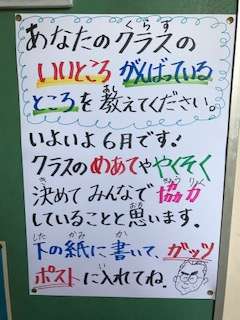 あなたのクラスの
いいところ がんばっている
ところを教えてください。
いよいよ6月です!
クラスのめあてややくそく
決めてみんなで協力
していることと思います。
下の紙に書いて、ガッツ
ポストに入れてね。